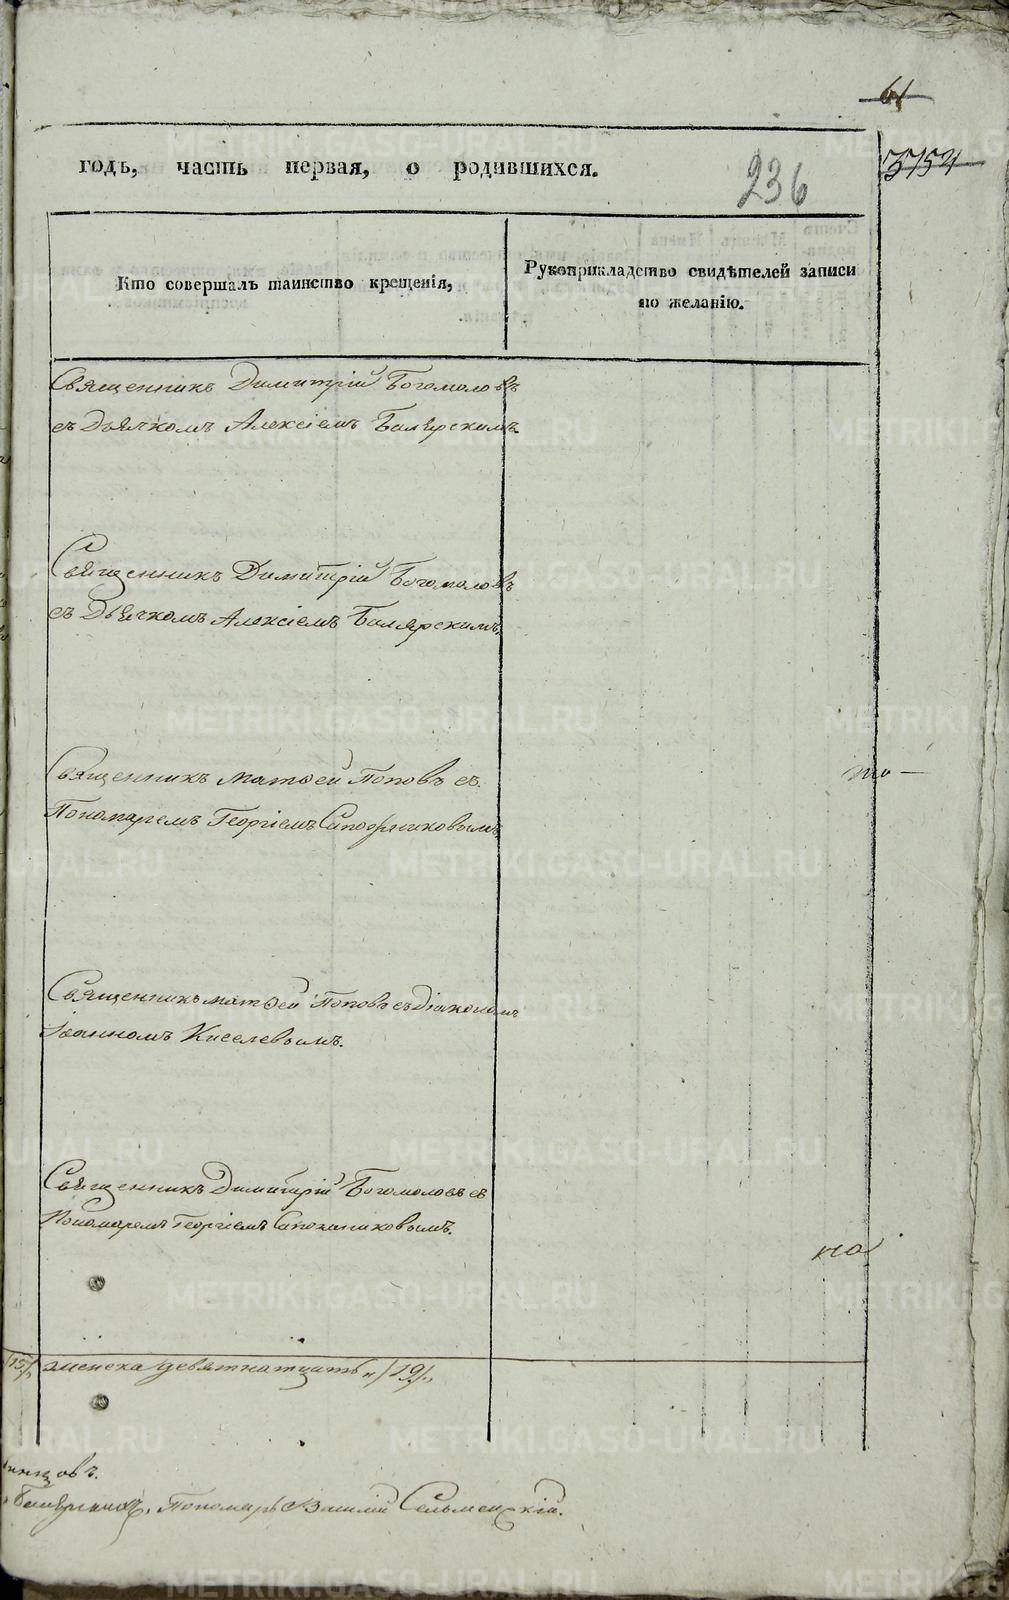 61
3754
годъ, часть первая, о родившихся.
236
Кто совершалъ таинство крещенія,
Рукоприкладство свидѣтелей записи
по желанію.
Священникъ Димитрій Богомоловъ
съ Дьячкомъ Алексіемъ Боярскимъ
Священникъ Димитрій Богомоловъ
съ Дьячкомъ Алексіемъ Боярскимъ.
Священникъ Матѳей Поповъ съ
Пономаремъ Георгіемъ Сапожниковымъ,
то —
Священникъ Матѳей Поповъ съ Діакономъ
Іоанномъ Киселевымъ.
Священникъ Димитрій Богомоловъ съ
Пономаремъ Георгіемъ Сапожниковымъ.
на
/15/, женска девятнатцать„ /19/„
Пономарь Василій Сельменскій.
METRIKI.GASO-URAL.RU